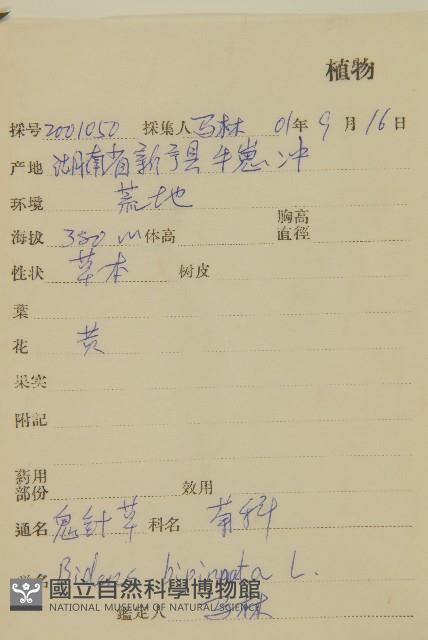 植物
採号 2001050 採集人 马林 01年 9月 16日
产地 湖南省新宁县 牛崽冲
环境 荒地
海拔 380 m 体高 胸高直徑
性状 草本 树皮
葉
花 黄
果实
附記
药用部份 效用
通名 鬼針草 科名 菊科
学名 Bidens bipinnata L.
國立自然科學博物館
NATIONAL MUSEUM OF NATURAL SCIENCE
鑑定人 马林